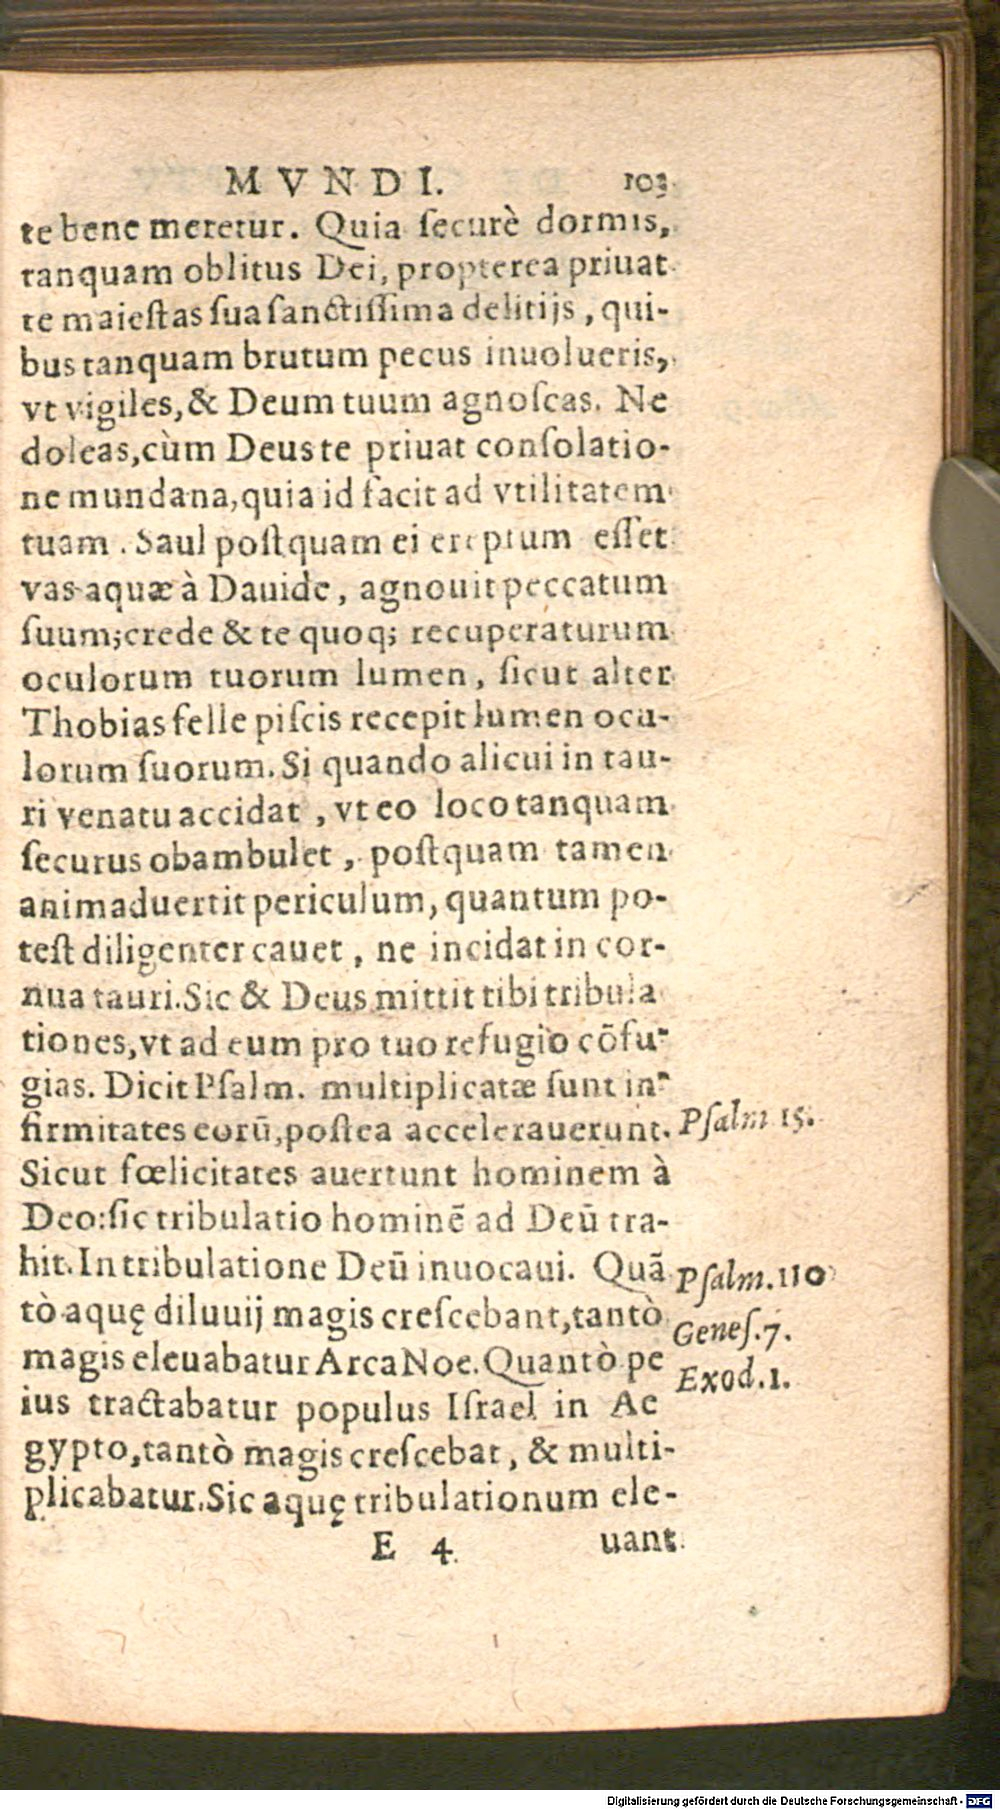 MVNDI. 103
te bene meretur. Quia ſecurè dormis,
tanquam oblitus Dei, propterea priuat
te maieſtas ſua ſanctiſſima delitijs, qui-
bus tanquam brutum pecus inuolueris,
vt vigiles, & Deum tuum agnoſcas. Ne
doleas, cùm Deus te priuat conſolatio-
ne mundana, quia id facit ad vtilitatem
tuam. Saul poſtquam ei ereptum eſſet
vas aquæ à Dauide, agnouit peccatum
ſuum; crede & te quoq; recuperaturum
oculorum tuorum lumen, ſicut alter
Thobias felle piſcis recepit lumen ocu-
lorum ſuorum. Si quando alicui in tau-
ri venatu accidat, vt eo loco tanquam
ſecurus obambulet, poſtquam tamen
animaduertit periculum, quantum po-
teſt diligenter cauet, ne incidat in cor-
nua tauri. Sic & Deus mittit tibi tribula
tiones, vt ad eum pro tuo refugio cõfu-
gias. Dicit Pſalm. multiplicatæ ſunt in-
firmitates eorũ, poſtea accelerauerunt. Pſalm 15.
Sicut fœlicitates auertunt hominem à
Deo: ſic tribulatio hominẽ ad Deũ tra-
hit. In tribulatione Deũ inuocaui. Quã Pſalm. 110
tò aquę diluuij magis creſcebant, tantò Geneſ. 7.
magis eleuabatur Arca Noe. Quantò pe Exod. 1.
ius tractabatur populus Iſrael in Ae
gypto, tantò magis creſcebat, & multi-
plicabatur. Sic aquę tribulationum ele-
E 4. uant
Digitalisierung gefördert durch die Deutsche Forschungsgemeinschaft - DFG